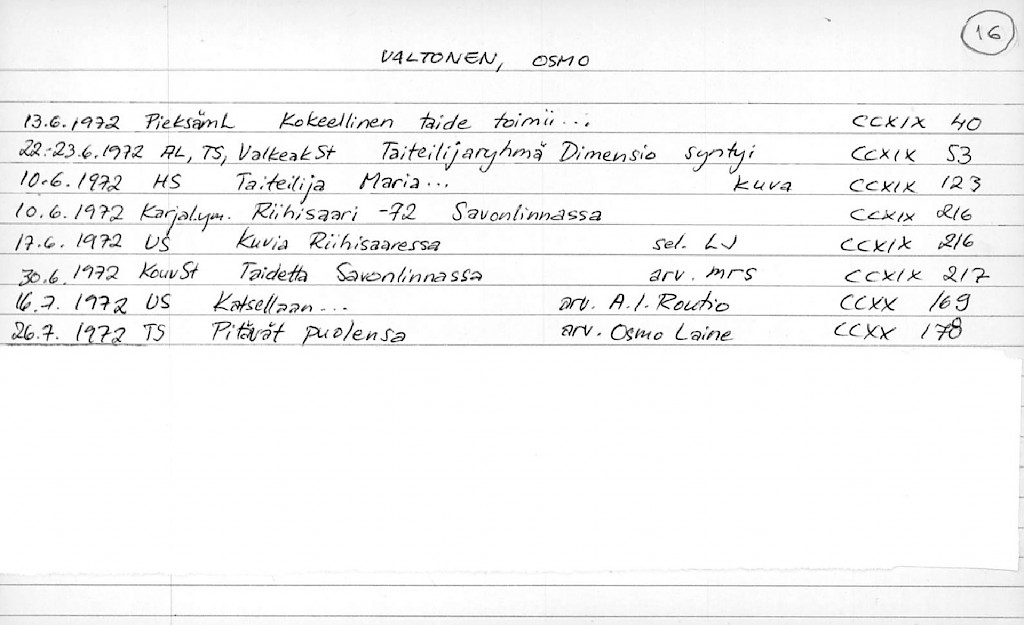 16
VALTONEN, OSMO
13.6.1972 PieksämL Kokeellinen taide toimii... CCXIX 40
22.-23.6.1972 AL, TS, ValkeakSt Taiteilijaryhmä Dimensio syntyi CCXIX 53
10.6.1972 HS Taiteilija Maria... kuva CCXIX 123
10.6.1972 Karjal.ym. Riihisaari -72 Savonlinnassa CCXIX 216
17.6.1972 US Kuvia Riihisaaressa sel. LJ CCXIX 216
30.6.1972 KouvSt Taidetta Savonlinnassa arv. mrs CCXIX 217
16.7.1972 US Katsellaan... arv. A.I. Routio CCXX 169
26.7.1972 TS Pitävät puolensa arv. Osmo Laine CCXX 178